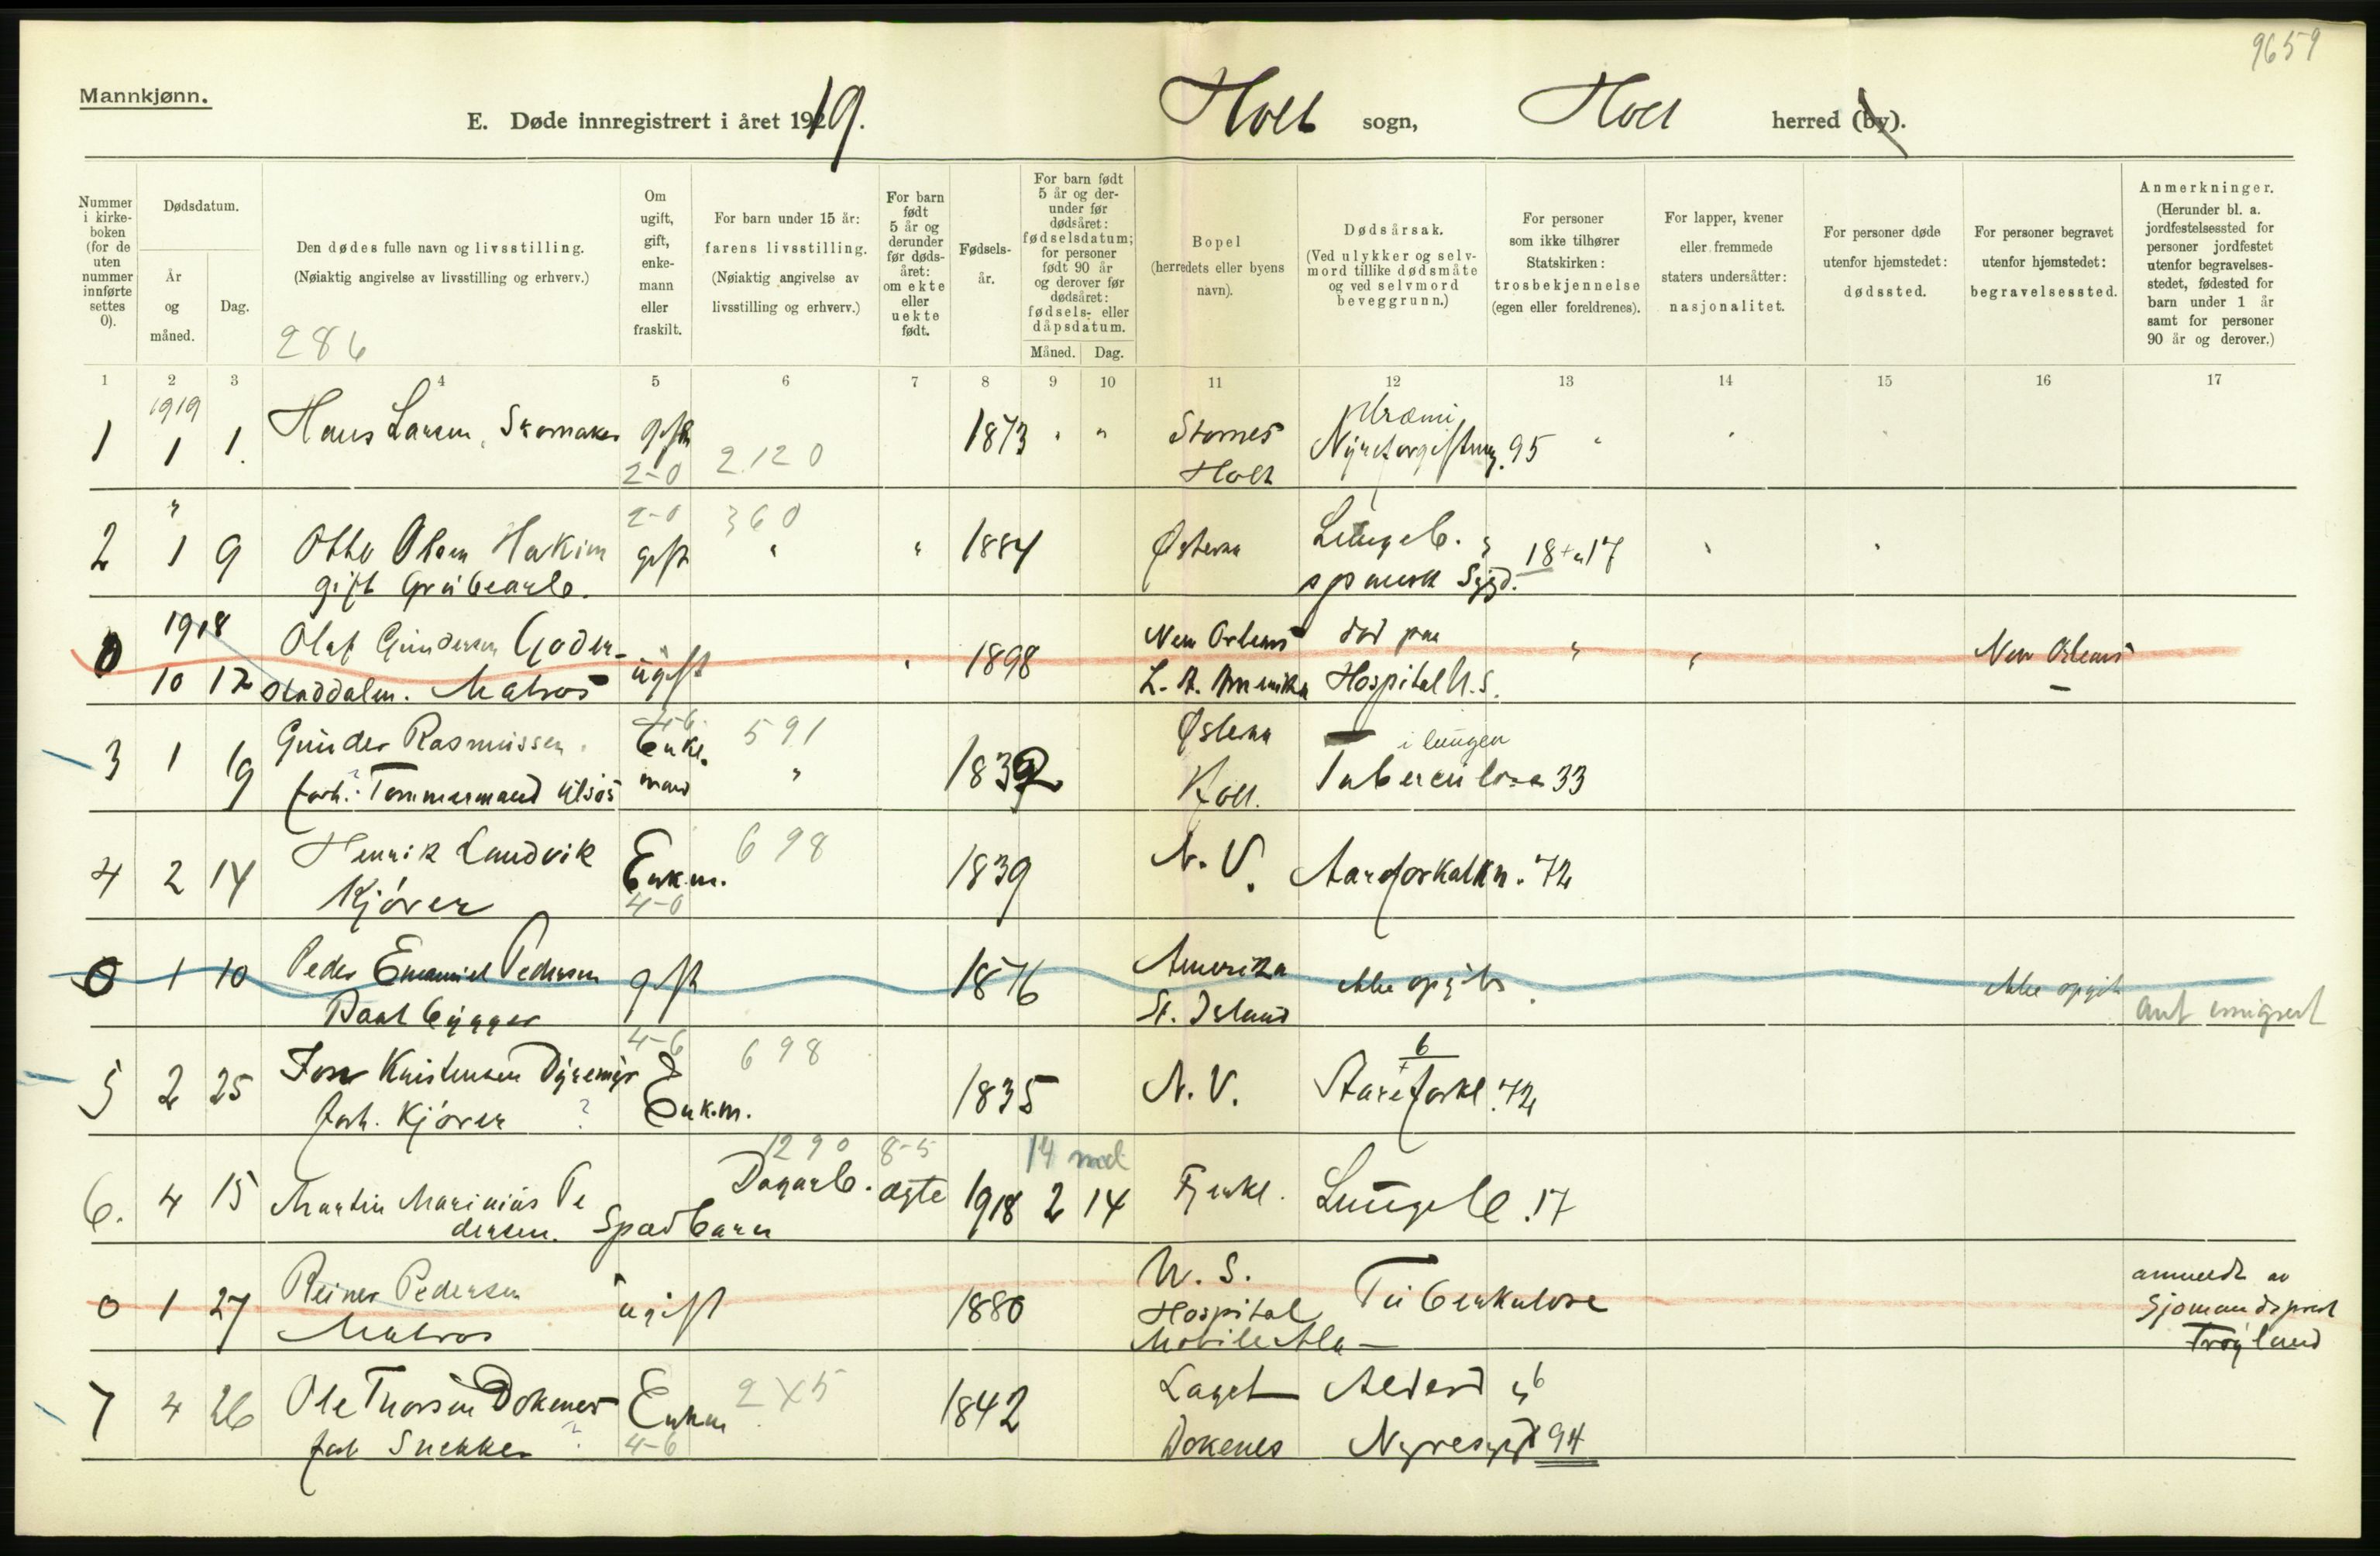 9659
Mannkjønn.
E. Døde innregistrert i året 1919.
Holt sogn, Holt herred (by).
Nummer i kirke- boken (for de uten nummer innførte settes 0).
Dødsdatum.
År og måned.
Dag.
Den dødes fulle navn og livsstilling.
(Nøiaktig angivelse av livsstilling og erhverv.)
286
Om ugift, gift, enke- mann eller fraskilt.
For barn under 15 år: farens livsstilling.
(Nøiaktig angivelse av livsstilling og erhverv.)
For barn født 5 år og derunder før døds- året: om ekte eller uekte født.
Fødsels- år.
For barn født 5 år og der- under før dødsåret: fødselsdatum; for personer født 90 år og derover før dødsåret: fødsels- eller dåpsdatum.
Måned. Dag.
Bopel
(herredets eller byens navn).
Dødsårsak.
(Ved ulykker og selv- mord tillike dødsmåte og ved selvmord beveggrunn.)
For personer som ikke tilhører Statskirken: trosbekjennelse (egen eller foreldrenes).
For lapper, kvener eller fremmede staters undersåtter: nasjonalitet.
For personer døde utenfor hjemstedet: dødssted.
For personer begravet utenfor hjemstedet: begravelsessted.
Anmerkninger.
(Herunder bl. a. jordfestelsessted for personer jordfestet utenfor begravelses- stedet, fødested for barn under 1 år samt for personer 90 år og derover.)
1 2 3 4 5 6 7 8 9 10 11 12 13 14 15 16 17
1919
1 1 1. Hans Larsen, Skomaker gift 1873 " " Stornes Uræmi
2-0 2120 Holt Nyreforgiftning. 95
" 2-0 360
2 1 9 Otto Olsen Hakim gift " " 1884 Østeraa Lungeb. 18 + 17
gift Grubearb. spansk Sygd.
1918
0 10 12 Olaf Gundersen Goder- ugift 1898 New Orleans død paa " " New Orleans
staddalen. Matros L. A. Amerika Hospital U.S. —
4-6 591
3 1 19 Gunder Rasmussen Enke- " 1839 Østeraa i lungen
forh. Tømmermand mand Holt. Tuberculose 33
698
4 2 14 Henrik Landvik Enkm. 1839 N. V. Aareforkalkn. 72
Kjører 4-0
0 1 10 Peder Emanuel Pedersen gift 1876 Amerika ikke opgit ikke opgit
Baatbygger St. Island ant emigrert
4-6 698 6
5 2 25 Kristensen Dyremyr 1835 N. V. Aareforkl. 72
forh. Kjører ? Enk.m.
1290 8-5 14 md
6. 4 15 Martin Marinius Pe Dagarb. ægte 1918 2 14 Fjerkl. Lungeb. 17
dersen. Spædbarn
0 1 27 Reiner Pedersen ugift 1880 U. S. Tuberkulose anmeldt av
Matros Hospital Sjømandsprest
Mobile Ala — Frøyland
7 4 26 Ole Thorsen Dokenes Enkm 2X5 1842 Laget Alderd 6
forh Snekker ? 4-6 Dokenes Nyresygd 94